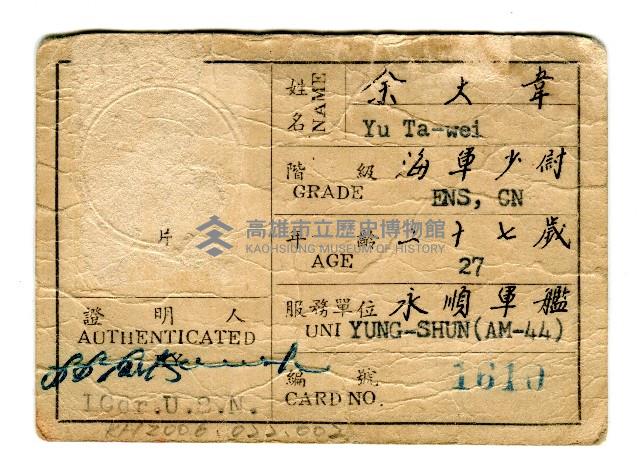 姓名 NAME 余大韋
Yu Ta-wei
階級 海軍少尉
GRADE ENS, CN
片
年齡 二十七歲
AGE 27
高雄市立歷史博物館
KAOHSIUNG MUSEUM OF HISTORY
證明人
AUTHENTICATED
服務單位 永順軍艦
UNI YUNG-SHUN(AM-44)
編號 1610
CARD NO.
U.S.N.
KH2006.022.002